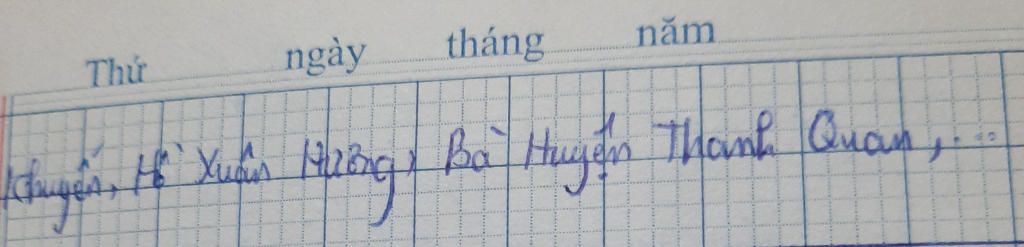 Thứ ngày tháng năm
Khuyến, Hồ Xuân Hương, Bà Huyện Thanh Quan,...